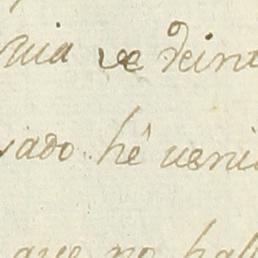 ria se deint
sado hê veni
que no hall